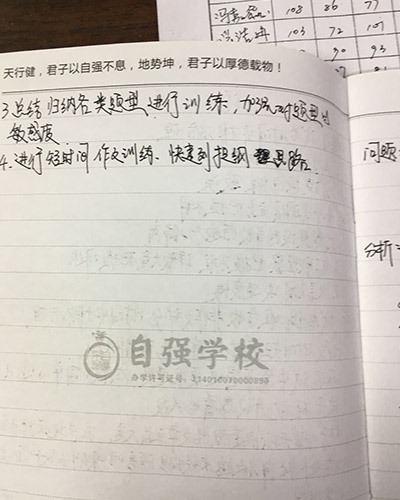 108 86 77
103 72 107
90 93
天行健，君子以自强不息，地势坤，君子以厚德载物！
3.总结归纳各类题型进行训练，加强对题型的
敏感度
4.进行短时间作文训练、快速列提纲 思路
问题
分析
自强学校
办学许可证号：